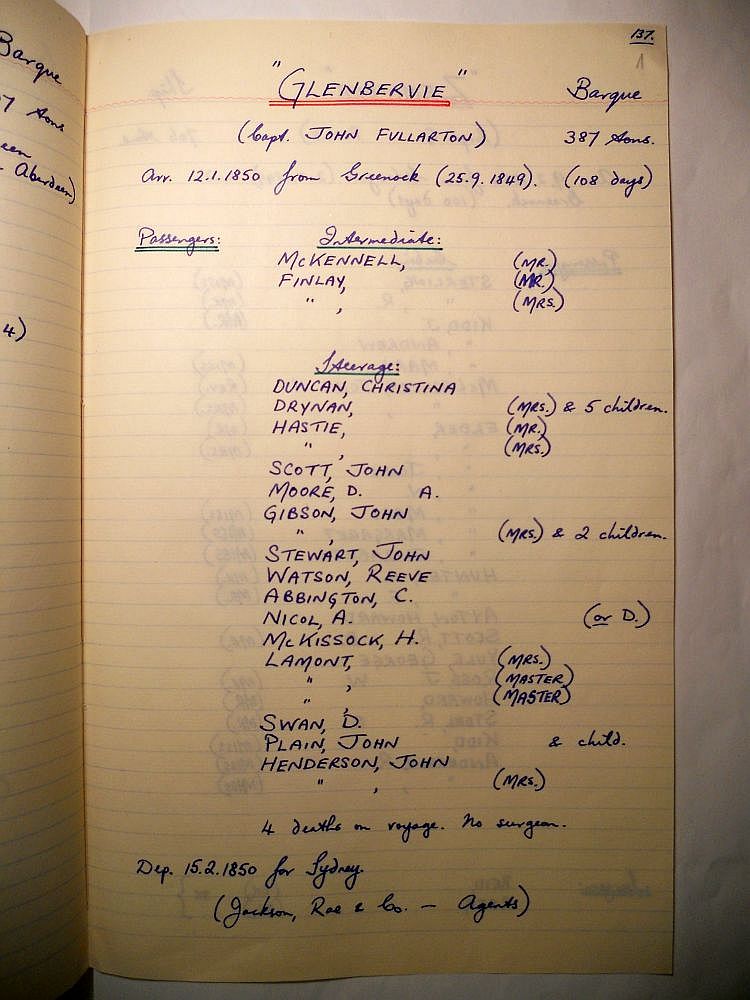 137.
1
Barque
"GLENBERVIE" Barque
(Capt. JOHN FULLARTON) 387 tons.
tons
Arr. 12.1.1850 from Greenock (25.9.1849). (108 days)
Aberdeen)
Passengers: Intermediate:
McKENNELL, (MR.)
FINLAY, (MR.)
" , (MRS.)
4)
Steerage:
DUNCAN, CHRISTINA
DRYNAN, (MRS.) & 5 children.
HASTIE, (MR.)
" , (MRS.)
SCOTT, JOHN
MOORE, D. A.
GIBSON, JOHN
" , (MRS.) & 2 children.
STEWART, JOHN
WATSON, REEVE
ABBINGTON, C.
NICOL, A. (or D.)
McKISSOCK, H.
LAMONT, (MRS.)
" , (MASTER)
" , (MASTER)
SWAN, D.
PLAIN, JOHN & child.
HENDERSON, JOHN
" , (MRS.)
4 deaths on voyage. No surgeon.
Dep. 15.2.1850 for Sydney.
(Jackson, Rae & Co. — Agents)